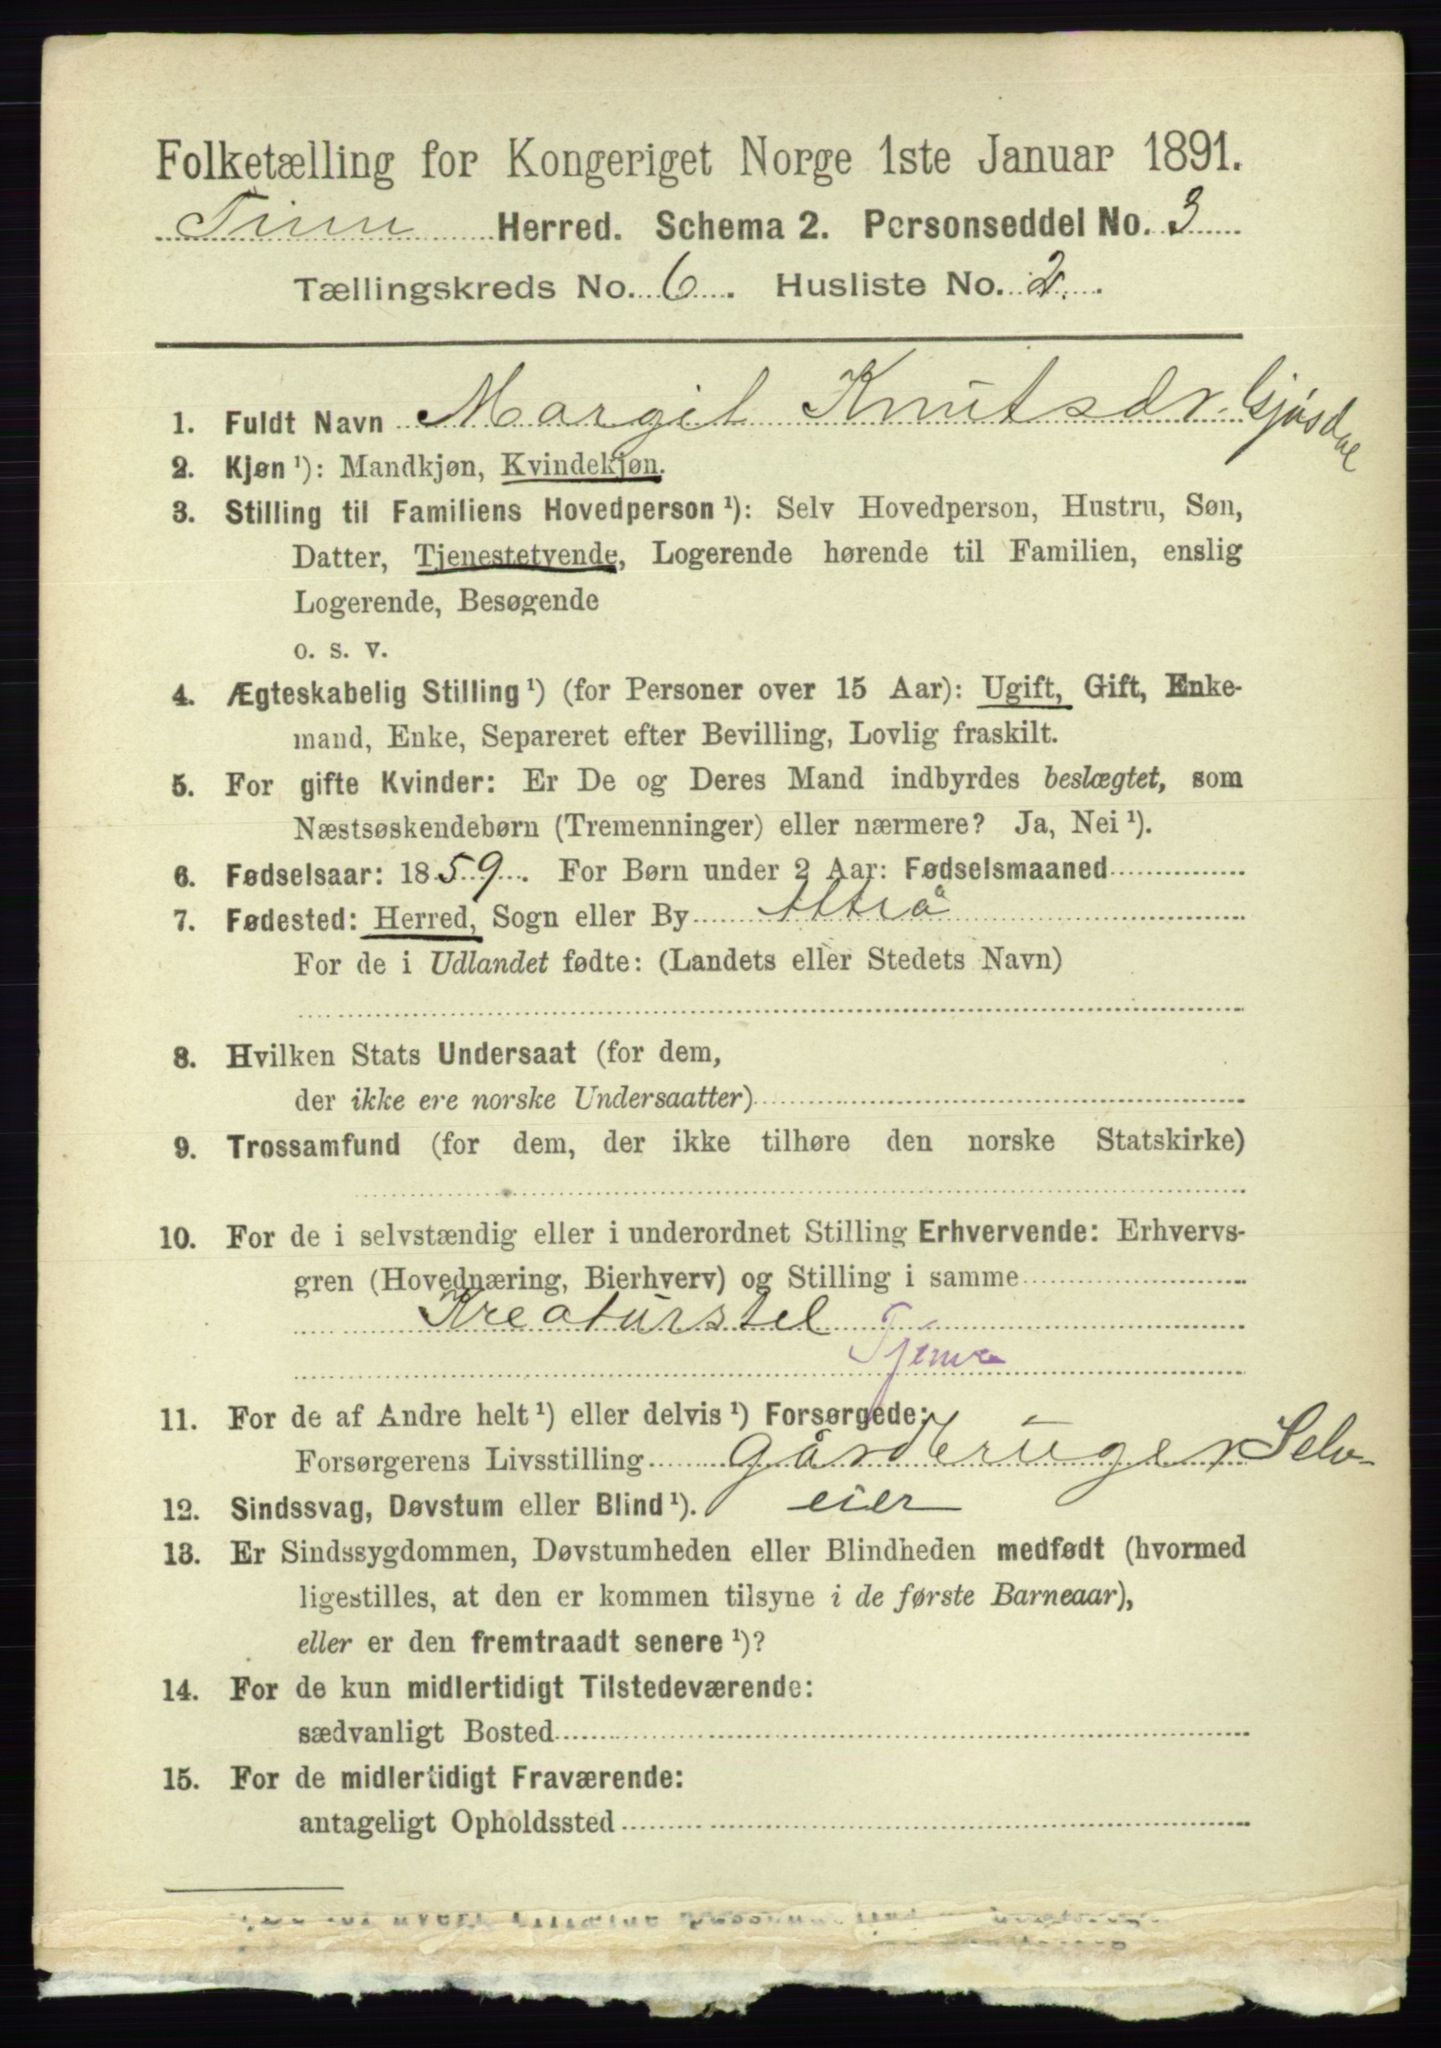 Folketælling for Kongeriget Norge 1ste Januar 1891.
Tinn Herred. Schema 2. Personseddel No. 3
Tællingskreds No. 6. Husliste No. 2.
1. Fuldt Navn Margit Knutsdr. Gjøsdal
2. Kjøn ¹): Mandkjøn, Kvindekjøn.
3. Stilling til Familiens Hovedperson ¹): Selv Hovedperson, Hustru, Søn,
Datter, Tjenestetyende, Logerende hørende til Familien, enslig
Logerende, Besøgende
o. s. v.
4. Ægteskabelig Stilling ¹) (for Personer over 15 Aar): Ugift, Gift, Enke-
mand, Enke, Separeret efter Bevilling, Lovlig fraskilt.
5. For gifte Kvinder: Er De og Deres Mand indbyrdes beslægtet, som
Næstsøskendebørn (Tremenninger) eller nærmere? Ja, Nei ¹).
6. Fødselsaar: 1859. For Børn under 2 Aar: Fødselsmaaned
7. Fødested: Herred, Sogn eller By Attrå
For de i Udlandet fødte: (Landets eller Stedets Navn)
8. Hvilken Stats Undersaat (for dem,
der ikke ere norske Undersaatter)
9. Trossamfund (for dem, der ikke tilhøre den norske Statskirke)
10. For de i selvstændig eller i underordnet Stilling Erhvervende: Erhvervs-
gren (Hovednæring, Bierhverv) og Stilling i samme
Kreaturstel
Tjener
11. For de af Andre helt ¹) eller delvis ¹) Forsørgede:
Forsørgerens Livsstilling Gårdbruger Selv-
12. Sindssvag, Døvstum eller Blind ¹). eier
13. Er Sindssygdommen, Døvstumheden eller Blindheden medfødt (hvormed
ligestilles, at den er kommen tilsyne i de første Barneaar),
eller er den fremtraadt senere ¹)?
14. For de kun midlertidigt Tilstedeværende:
sædvanligt Bosted
15. For de midlertidigt Fraværende:
antageligt Opholdssted